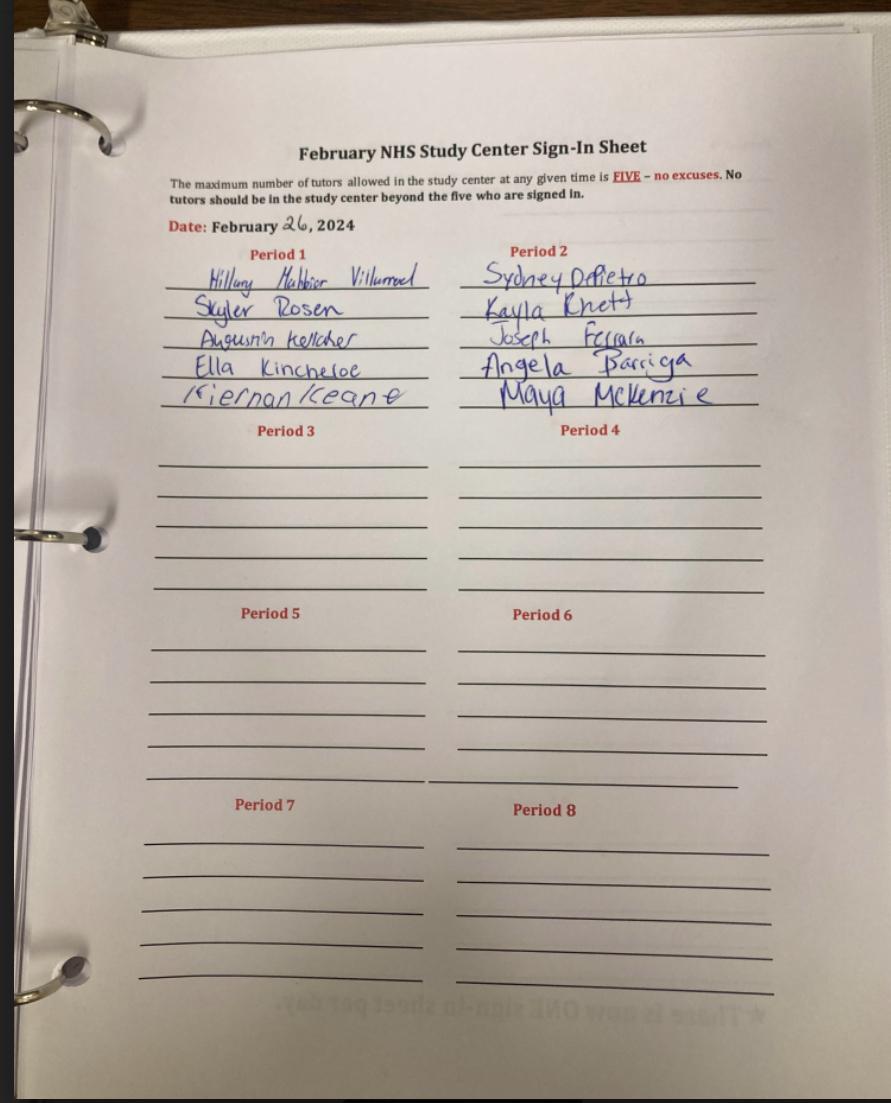 February NHS Study Center Sign-In Sheet
The maximum number of tutors allowed in the study center at any given time is FIVE – no excuses. No
tutors should be in the study center beyond the five who are signed in.
Date: February 26, 2024
Period 1
Hillary
Skyler Rosen
Kelleher
Ella Kincheloe
Kiernan Keane
Period 2
Sydney DePietro
Kayla Rhett
Joseph Ferrara
Angela Barriga
Maya McKenzie
Period 3
Period 4
Period 5
Period 6
Period 7
Period 8
★ There is now ONE sign-in sheet per day.